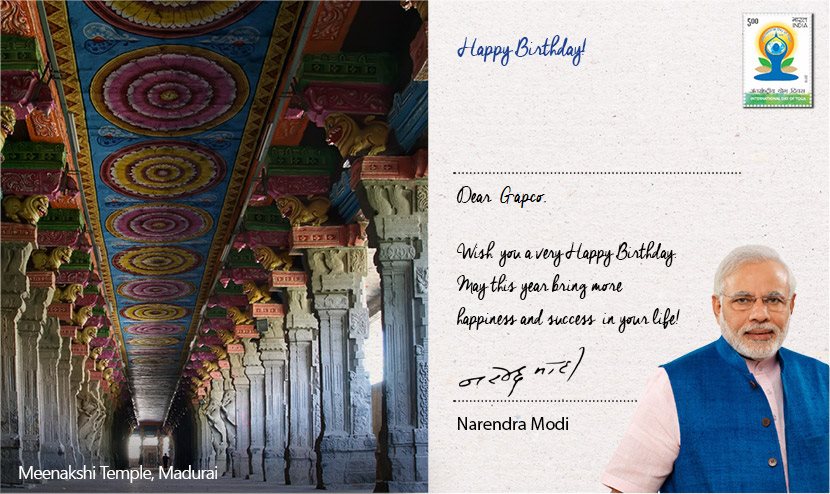 Happy Birthday!
5.00
भारत
INDIA
अंतर्राष्ट्रीय योग दिवस
INTERNATIONAL DAY OF YOGA
Dear Gapco.
Wish you a very Happy Birthday.
May this year bring more
happiness and success in your life!
नरेन्द्र मोदी
Narendra Modi
Meenakshi Temple, Madurai